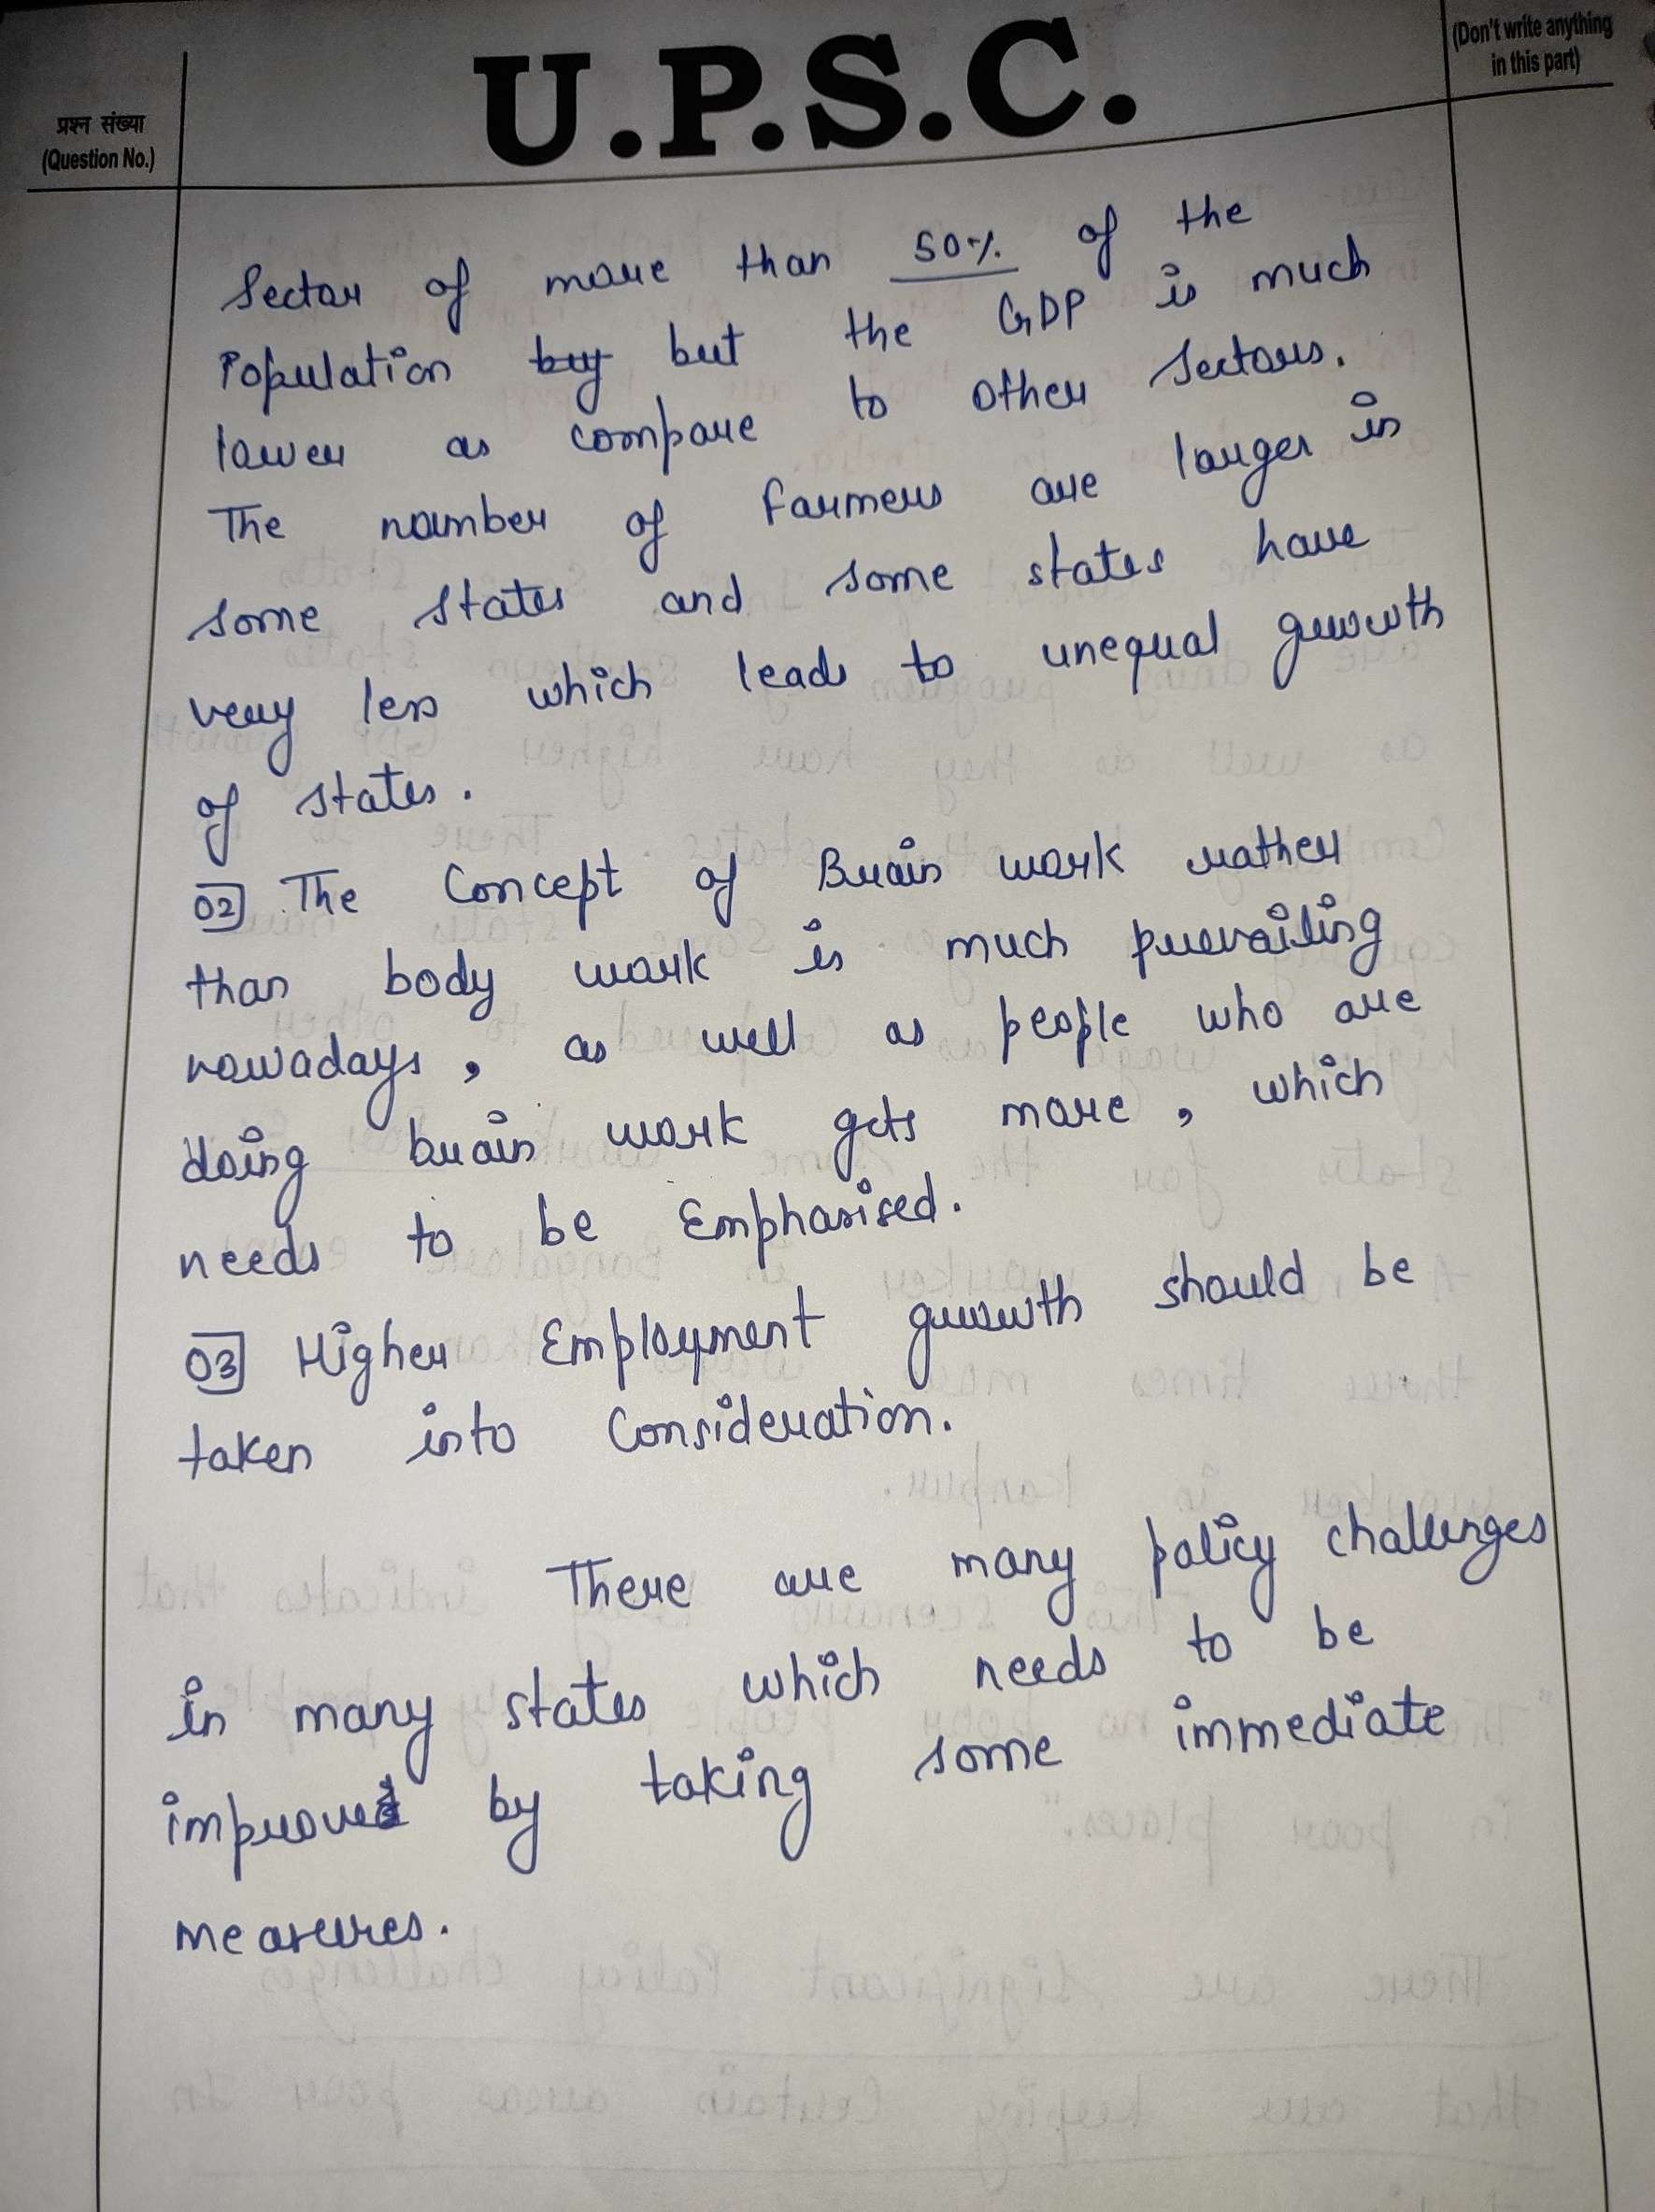 U.P.S.C.
(Don't write anything
in this part)
प्रश्न संख्या
(Question No.)
Sector of more than 50% of the
Population but the GDP is much
lower as compare to other sectors.
The number of farmers are larger in
some states and some states have
very less which leads to unequal growth
of states.
02 The Concept of Brain work rather
than body work is much prevailing
nowadays, as well as people who are
doing brain work gets more, which
needs to be Emphasised.
03 Higher Employment growth should be
taken into Consideration.
There are many policy challenges
in many states which needs to be
improved by taking some immediate
measures.